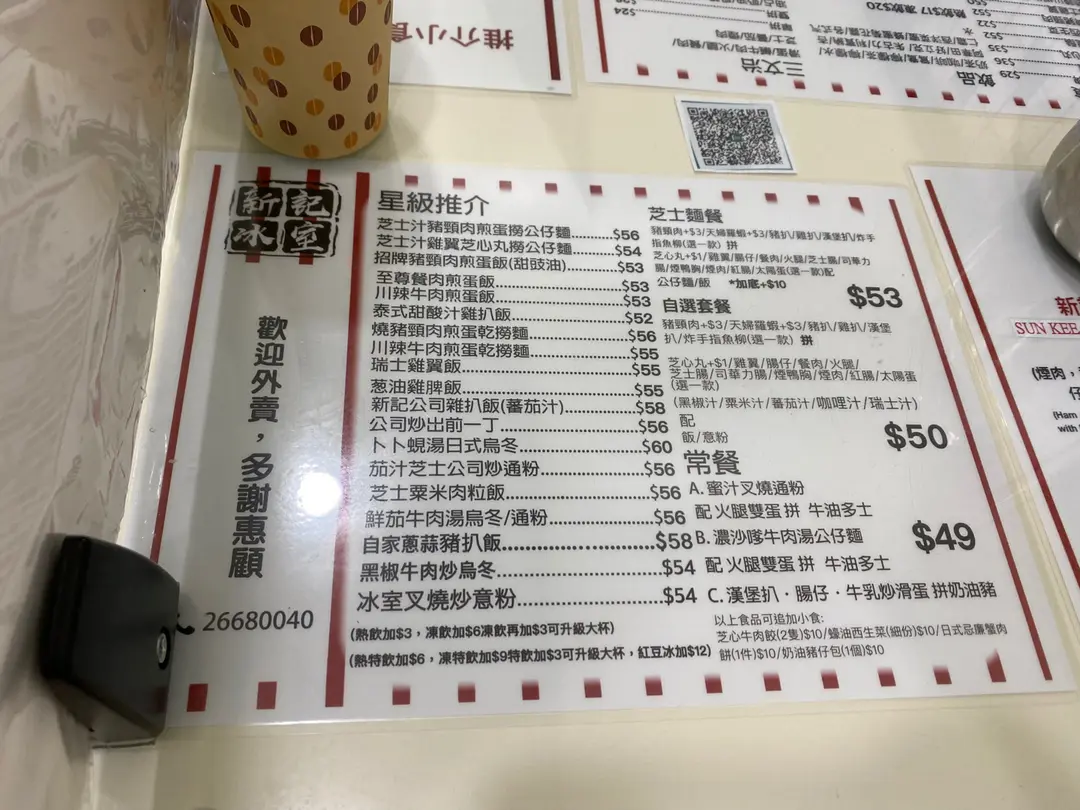 推介小食
三文治
飲品
新記
冰室
歡迎外賣，多謝惠顧
26680040
星級推介
芝士汁豬頸肉煎蛋撈公仔麵...........$56
芝士汁雞翼芝心丸撈公仔麵...........$54
招牌豬頸肉煎蛋飯(甜豉油)...........$53
至尊餐肉煎蛋飯...........$53
川辣牛肉煎蛋飯...........$53
泰式甜酸汁雞扒飯...........$52
燒豬頸肉煎蛋乾撈麵...........$56
川辣牛肉煎蛋乾撈麵...........$55
瑞士雞翼飯...........$55
葱油雞脾飯...........$55
新記公司雜扒飯(蕃茄汁)...........$58
公司炒出前一丁...........$56
卜卜蜆湯日式烏冬...........$60
茄汁芝士公司炒通粉...........$56
芝士粟米肉粒飯...........$56
鮮茄牛肉湯烏冬/通粉...........$56
自家蔥蒜豬扒飯...........$58
黑椒牛肉炒烏冬...........$54
冰室叉燒炒意粉...........$54
(熱飲加$3，凍飲加$6凍飲再加$3可升級大杯)
(熱特飲加$6，凍特飲加$9特飲加$3可升級大杯，紅豆冰加$12)
芝士麵餐
豬頸肉+$3/天婦羅蝦+$3/豬扒/雞扒/漢堡扒/炸手
指魚柳(選一款) 拼
芝心丸+$1/雞翼/腸仔/餐肉/火腿/芝士腸/司華力
腸/煙鴨胸/煙肉/紅腸/太陽蛋(選一款)配
公仔麵/飯 *加底+$10
$53
自選套餐
豬頸肉+$3/天婦羅蝦+$3/豬扒/雞扒/漢堡
扒/炸手指魚柳(選一款) 拼
芝心丸+$1/雞翼/腸仔/餐肉/火腿/
芝士腸/司華力腸/煙鴨胸/煙肉/紅腸/太陽蛋
(選一款)
(黑椒汁/粟米汁/蕃茄汁/咖哩汁/瑞士汁)
配
飯/意粉
$50
常餐
A. 蜜汁叉燒通粉
配 火腿雙蛋 拼 牛油多士
B. 濃沙嗲牛肉湯公仔麵
配 火腿雙蛋 拼 牛油多士
$49
C. 漢堡扒·腸仔·牛乳炒滑蛋 拼奶油豬
以上食品可追加小食:
芝心牛肉餃(2隻)$10/蠔油西生菜(細份)$10/日式忌廉蟹肉
餅(1件)$10/奶油豬仔包(1個)$10
新
SUN KEE
(煙肉，
仔
(Ham
with